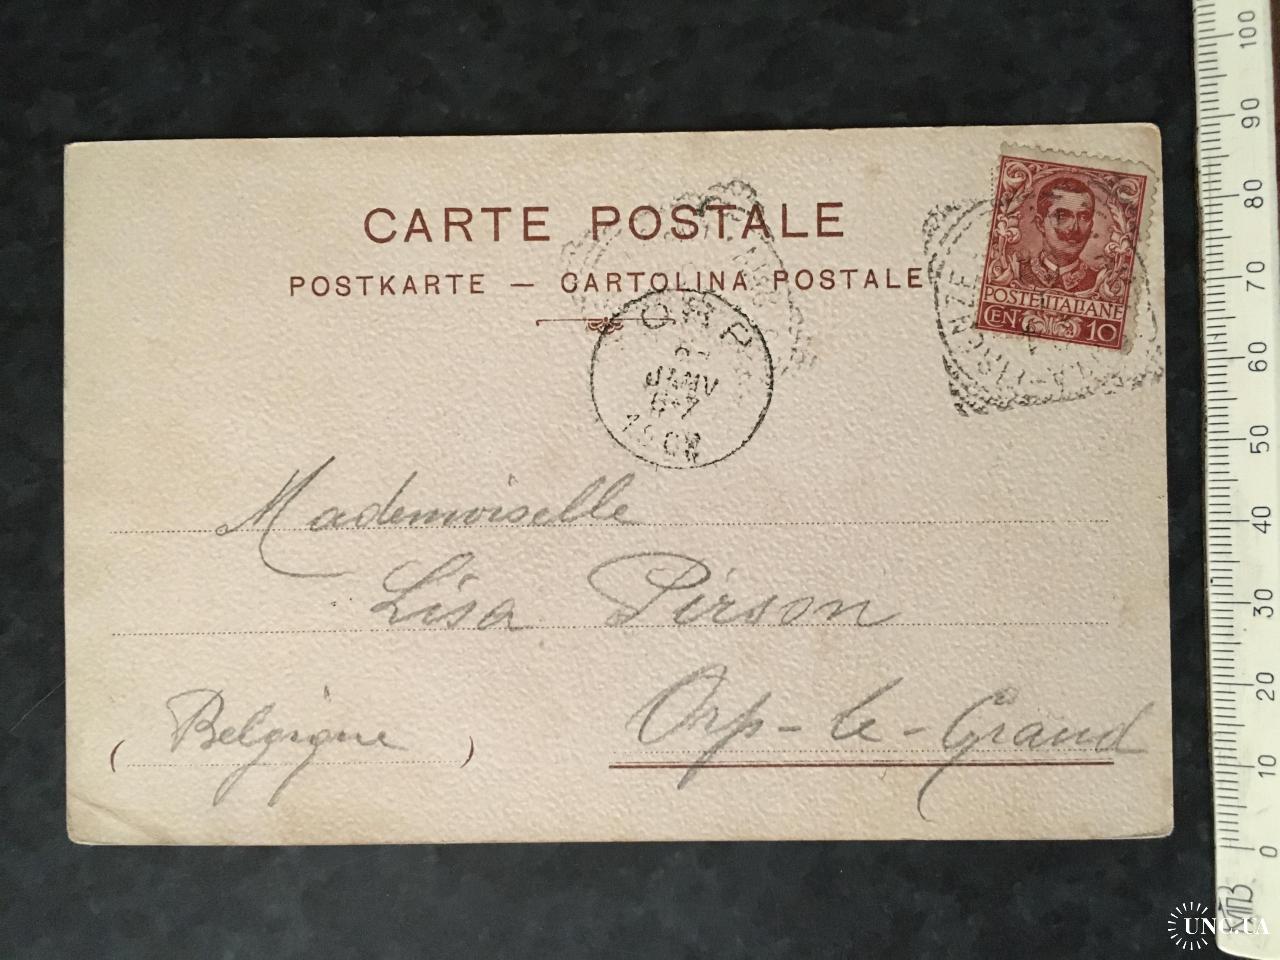 CARTE POSTALE
POSTKARTE — CARTOLINA POSTALE
POSTE ITALIANE
CEN 10
ORP
JANV
6-7
Mademoiselle
Lisa Pirson
Orp-le-Grand
(Belgique)
100
90
80
70
60
50
40
30
20
10
0
UNC.UA